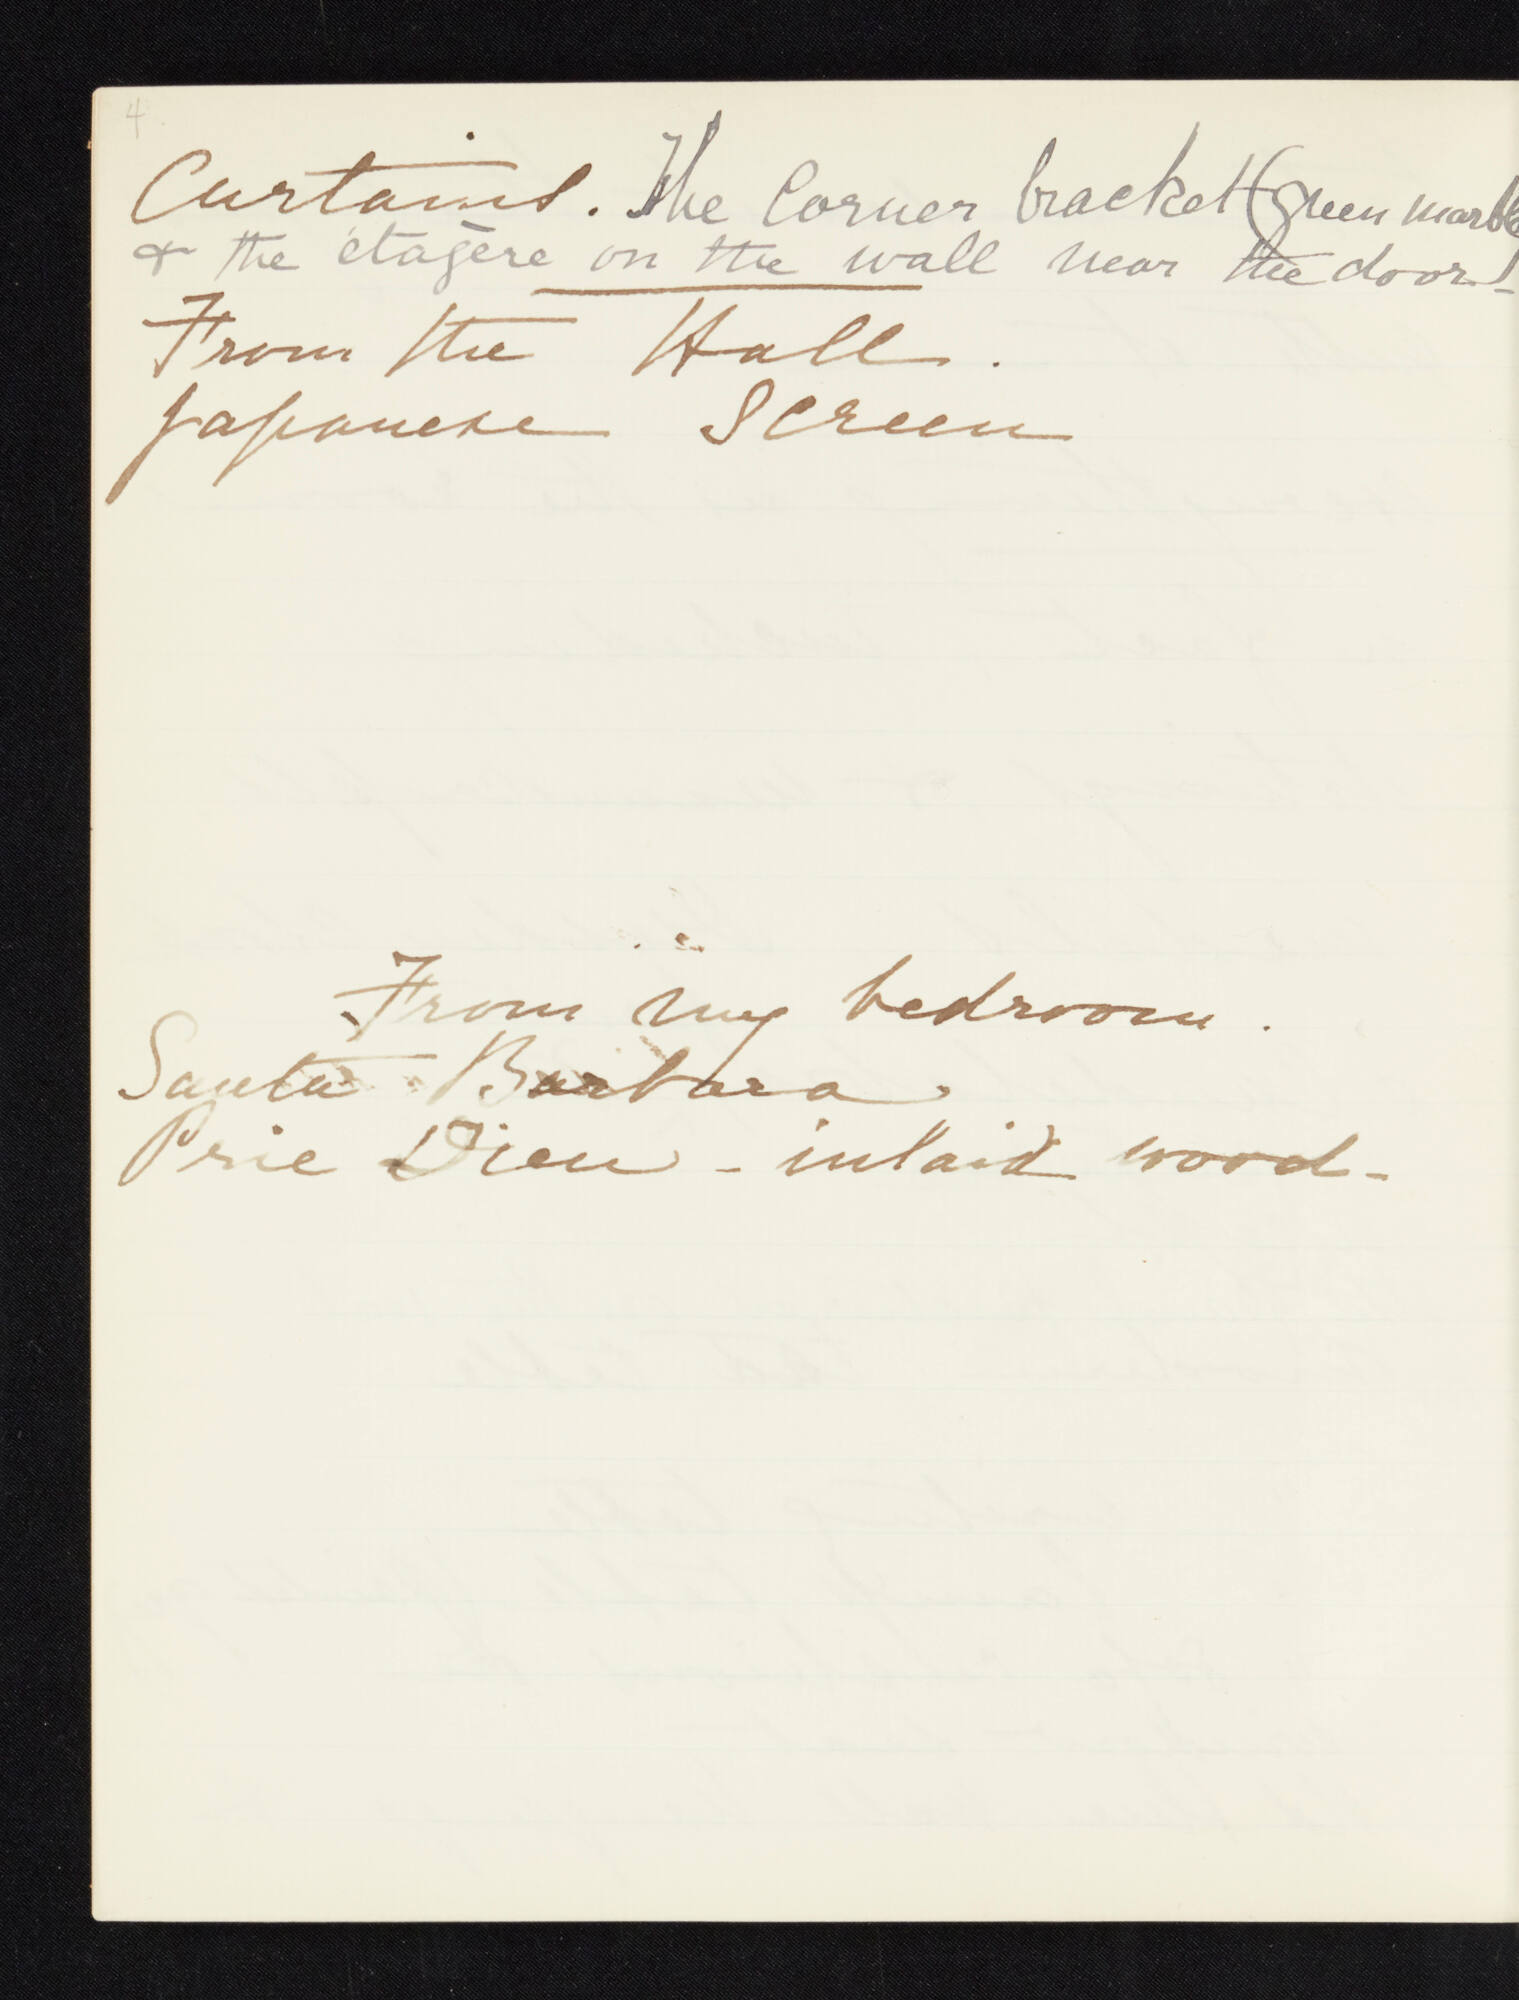 4.
Curtains. The Corner bracket (green marble)
& the étagère on the wall near the door_
From the Hall.
Japanese Screen
From my bedroom.
Santa Barbara
Prie Dieu - inlaid wood -